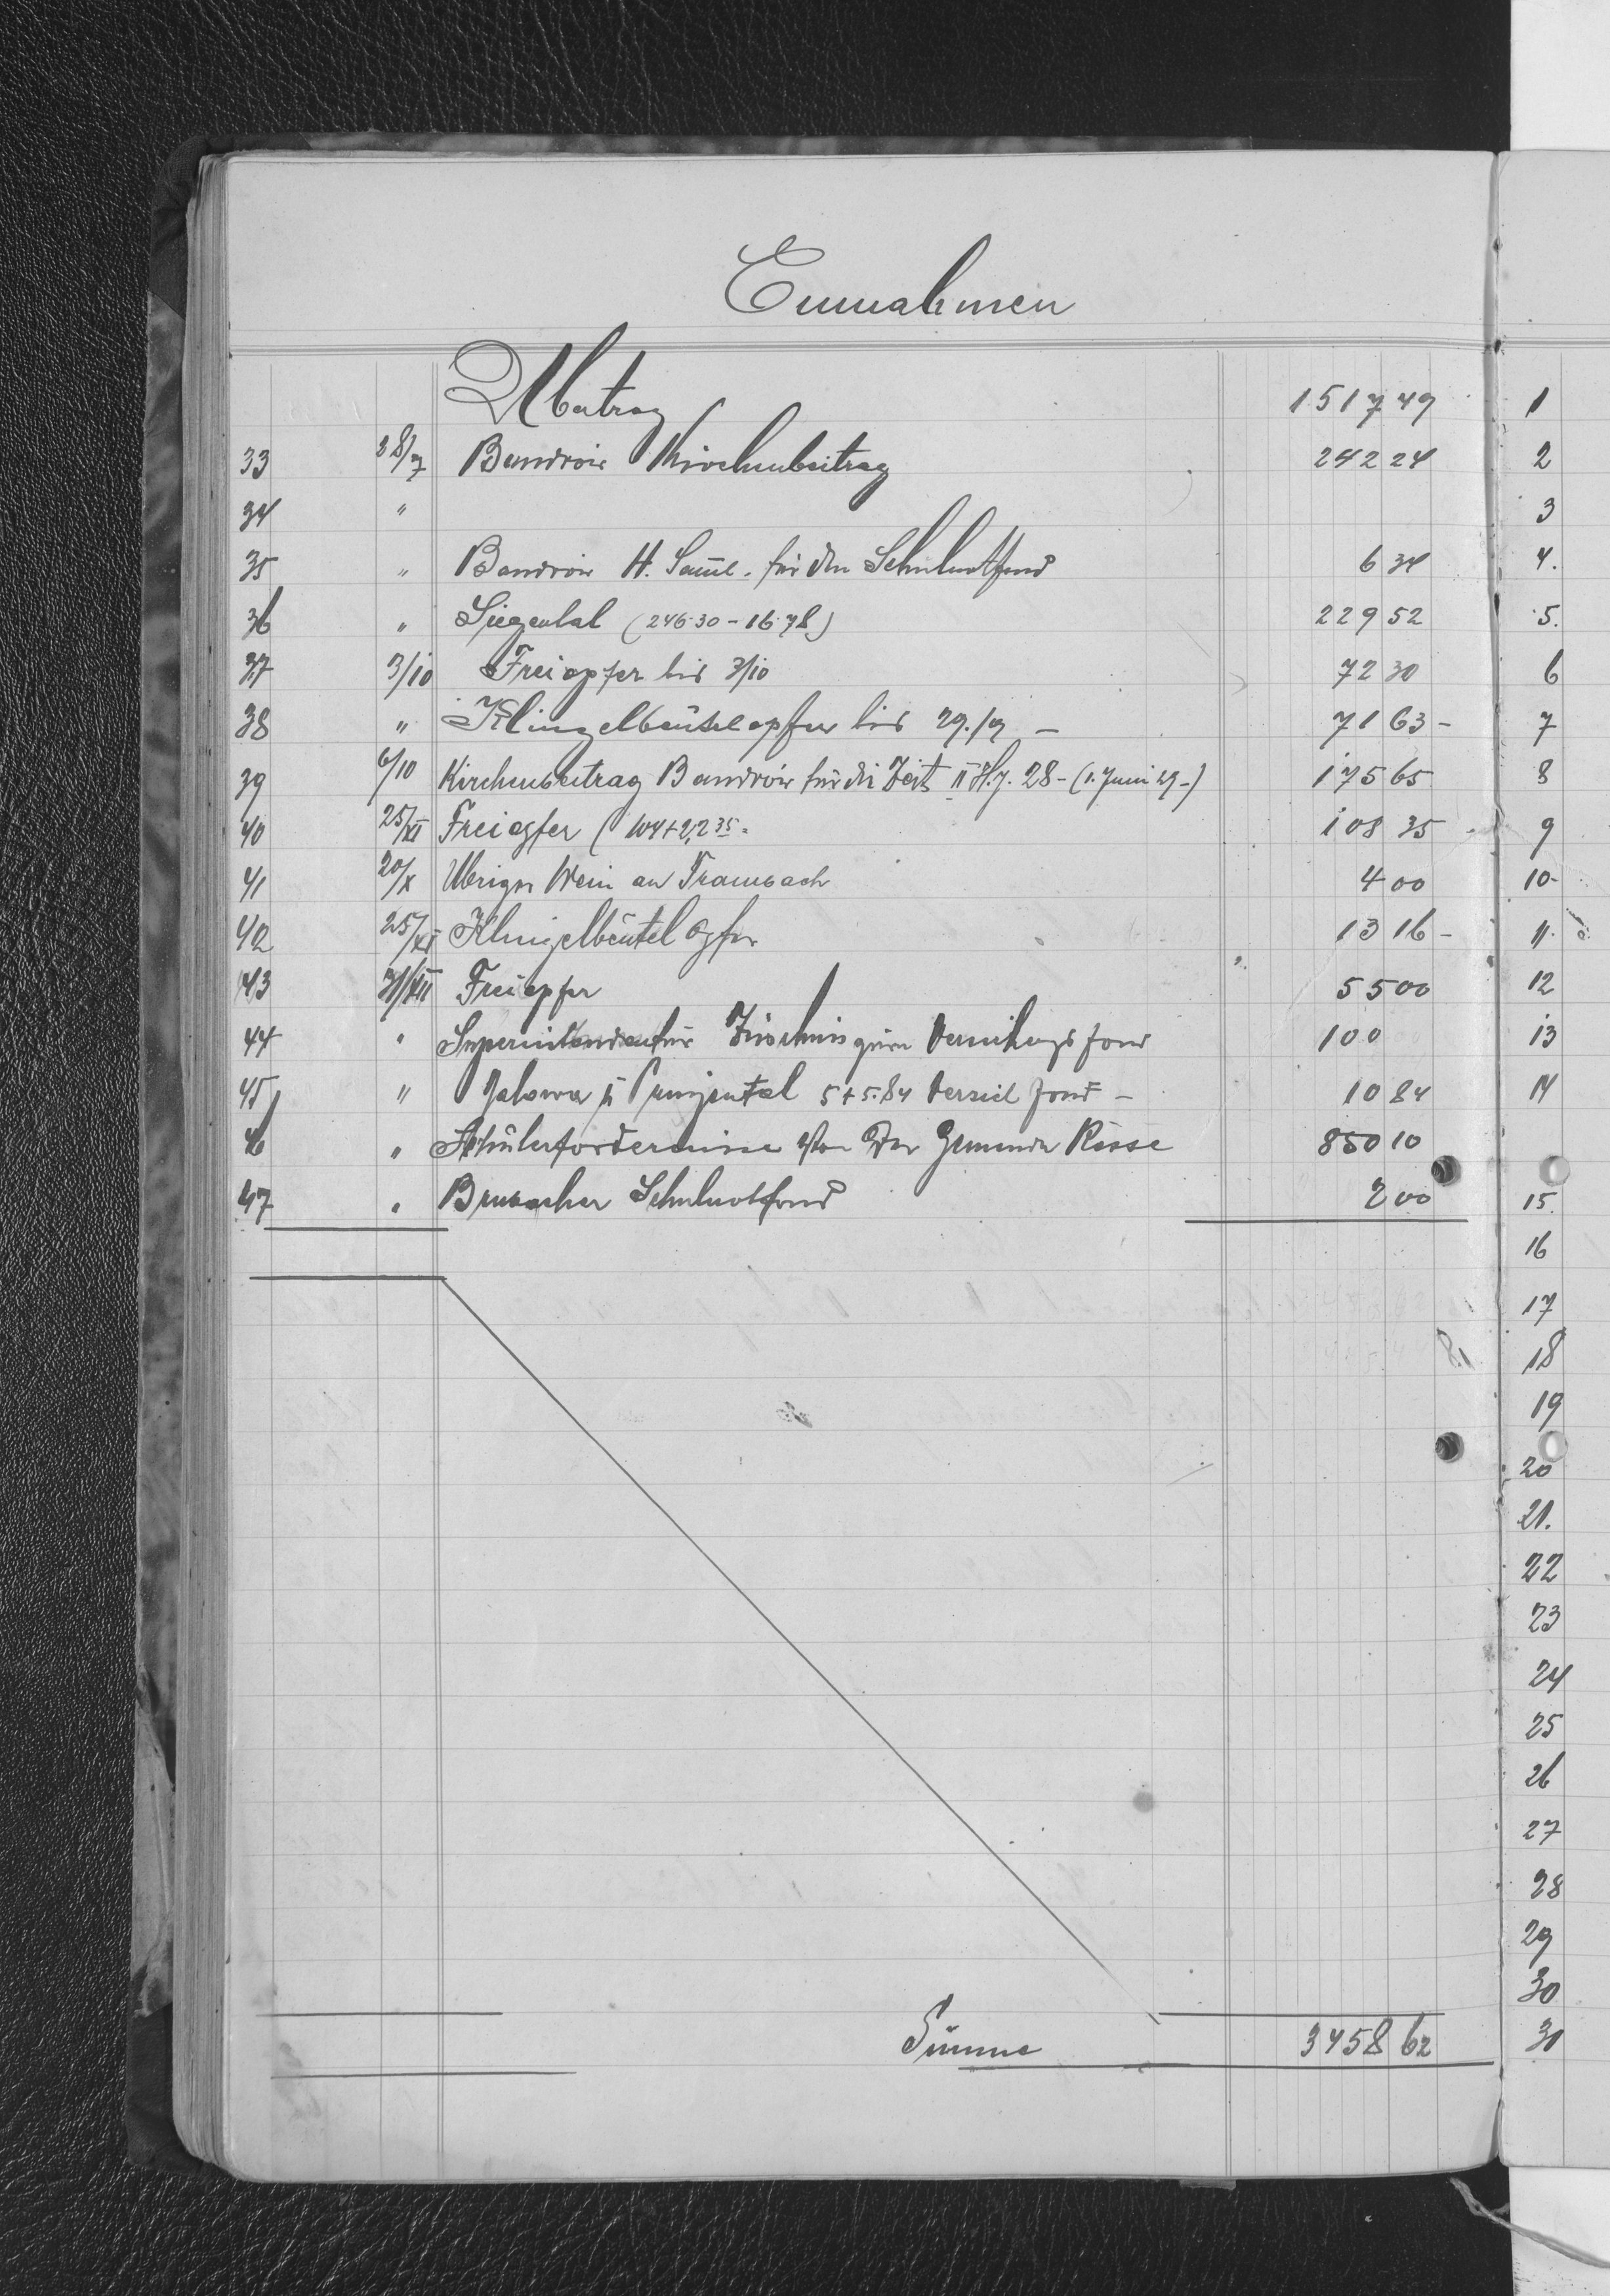 Einnahmen
Übertrag 1517 49
33 28/7 Bandrow Kirchenbeitrag 242 24
34 "
35 " Bandrow H. Samml. für den Schulnotfond 6 34
36 " Siegental (246.30 - 16.78) 229 52
37 3/10 Freiopfer bis 3/10 72 30
38 " Klingelbeutelopfer bis 29./9 - 71 63 -
39 6/10 Kirchenbeitrag Bandrow für die Zeit II H.J. 28 - (1. Juni 29 -) 175 65
40 25/XI Freiopfer ( 104 + 2,2 35 = 108 35
41 20/X Übriger Wein an Trambach 4 00
42 25/XI Klingelbeutel Opfer 13 16 -
43 31/XII Freiopfer 55 00
44 " Superintendentur Zuschuss zum Versich. fond 100
45 " Jalowa u 5 + 5.84 Versich fond - 10 84
46 " von der Gemeinde 850 10
47 " Schulnotfond 2 00
Summe 3458 62
1
2
3
4.
5.
6
7
8
9
10-
11.
12
13
14
15.
16
17
18
19
20
21.
22
23
24
25
26
27
28
29
30
30